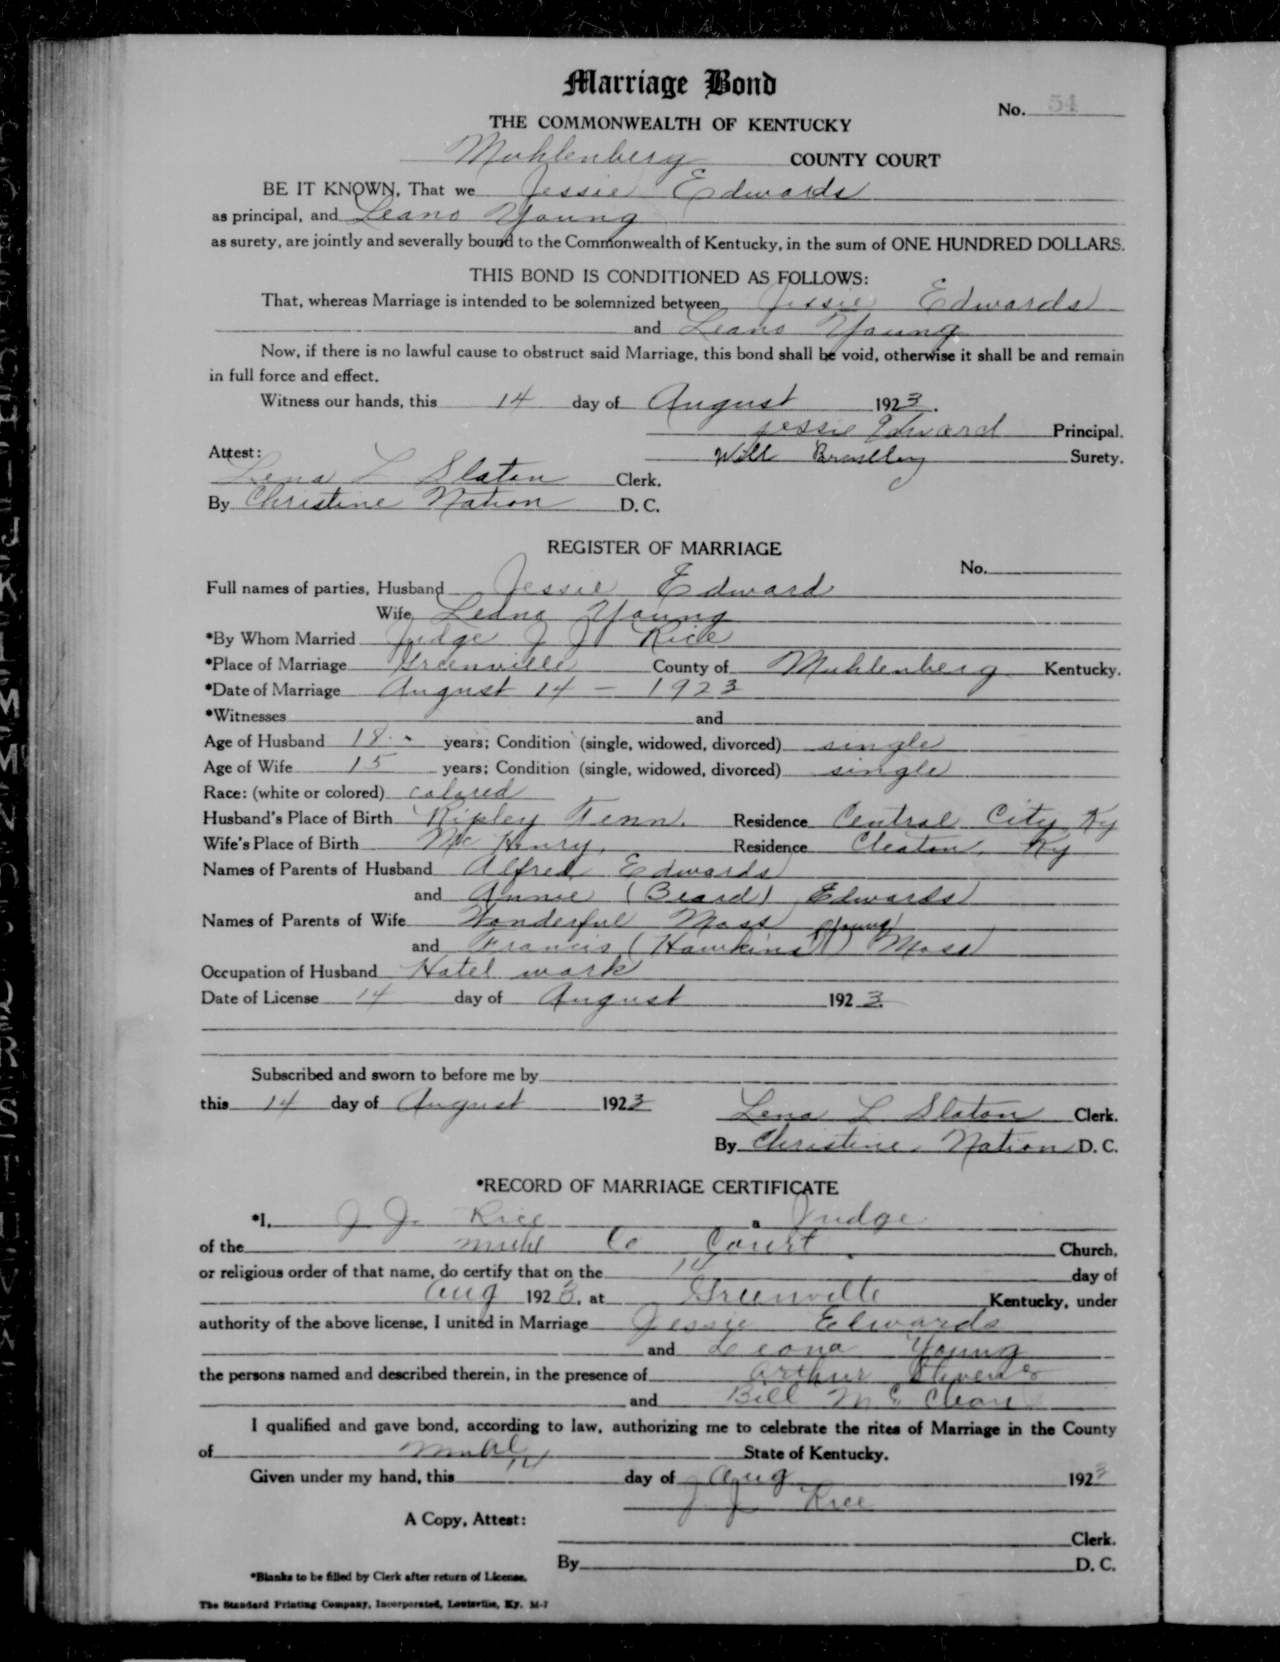 Marriage Bond
No. 54
THE COMMONWEALTH OF KENTUCKY
Muhlenberg COUNTY COURT
BE IT KNOWN, That we Jessie Edwards
as principal, and Leano Young
as surety, are jointly and severally bound to the Commonwealth of Kentucky, in the sum of ONE HUNDRED DOLLARS.
THIS BOND IS CONDITIONED AS FOLLOWS:
That, whereas Marriage is intended to be solemnized between Jessie Edwards
and Leano Young
Now, if there is no lawful cause to obstruct said Marriage, this bond shall be void, otherwise it shall be and remain
in full force and effect.
Witness our hands, this 14 day of August 1923.
Jessie Edward Principal.
Attest: Will Surety.
Lena L Slaton Clerk.
By Christine Nation D. C.
REGISTER OF MARRIAGE
No.
Full names of parties, Husband Jessie Edward
Wife Leano Young
*By Whom Married Judge J J Rice
*Place of Marriage Greenville County of Muhlenberg Kentucky.
*Date of Marriage August 14 - 1923
*Witnesses and
Age of Husband 18 years; Condition (single, widowed, divorced) single
Age of Wife 15 years; Condition (single, widowed, divorced) single
Race: (white or colored) colored
Husband's Place of Birth Ripley Tenn. Residence Central City, Ky
Wife's Place of Birth Mc Henry, Residence Cleaton, Ky
Names of Parents of Husband Alfred Edwards
and Annie (Beard) Edwards
Names of Parents of Wife Wonderful Moss
and Francis (Hawkins) (Young) Moss
Occupation of Husband Hotel work
Date of License 14 day of August 1923.
Subscribed and sworn to before me by
this 14 day of August 1923
Lena L Slaton Clerk.
By Christine Nation D. C.
*RECORD OF MARRIAGE CERTIFICATE
*I, J. J. Rice a Judge
of the Muhl Co Court Church,
or religious order of that name, do certify that on the 14 day of
Aug 1923, at Greenville Kentucky, under
authority of the above license, I united in Marriage Jessie Edwards
and Leona Young
the persons named and described therein, in the presence of Arthur Stevens
and Bill Mc Clean
I qualified and gave bond, according to law, authorizing me to celebrate the rites of Marriage in the County
of Muhl State of Kentucky.
Given under my hand, this 14 day of Aug 1923
J J Rice
A Copy, Attest:
Clerk.
By D. C.
*Blanks to be filled by Clerk after return of License.
The Standard Printing Company, Incorporated, Louisville, Ky. M-7